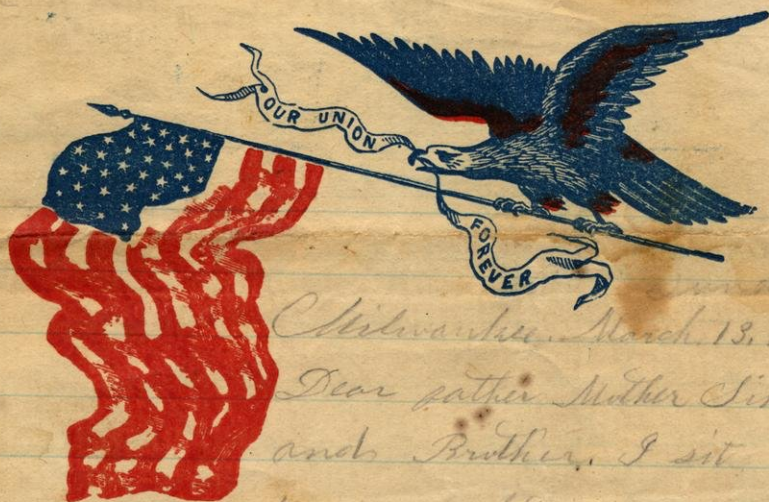 OUR UNION
FOREVER
Milwaukee. March, 13.
Dear father Mother
and Brother. I sit